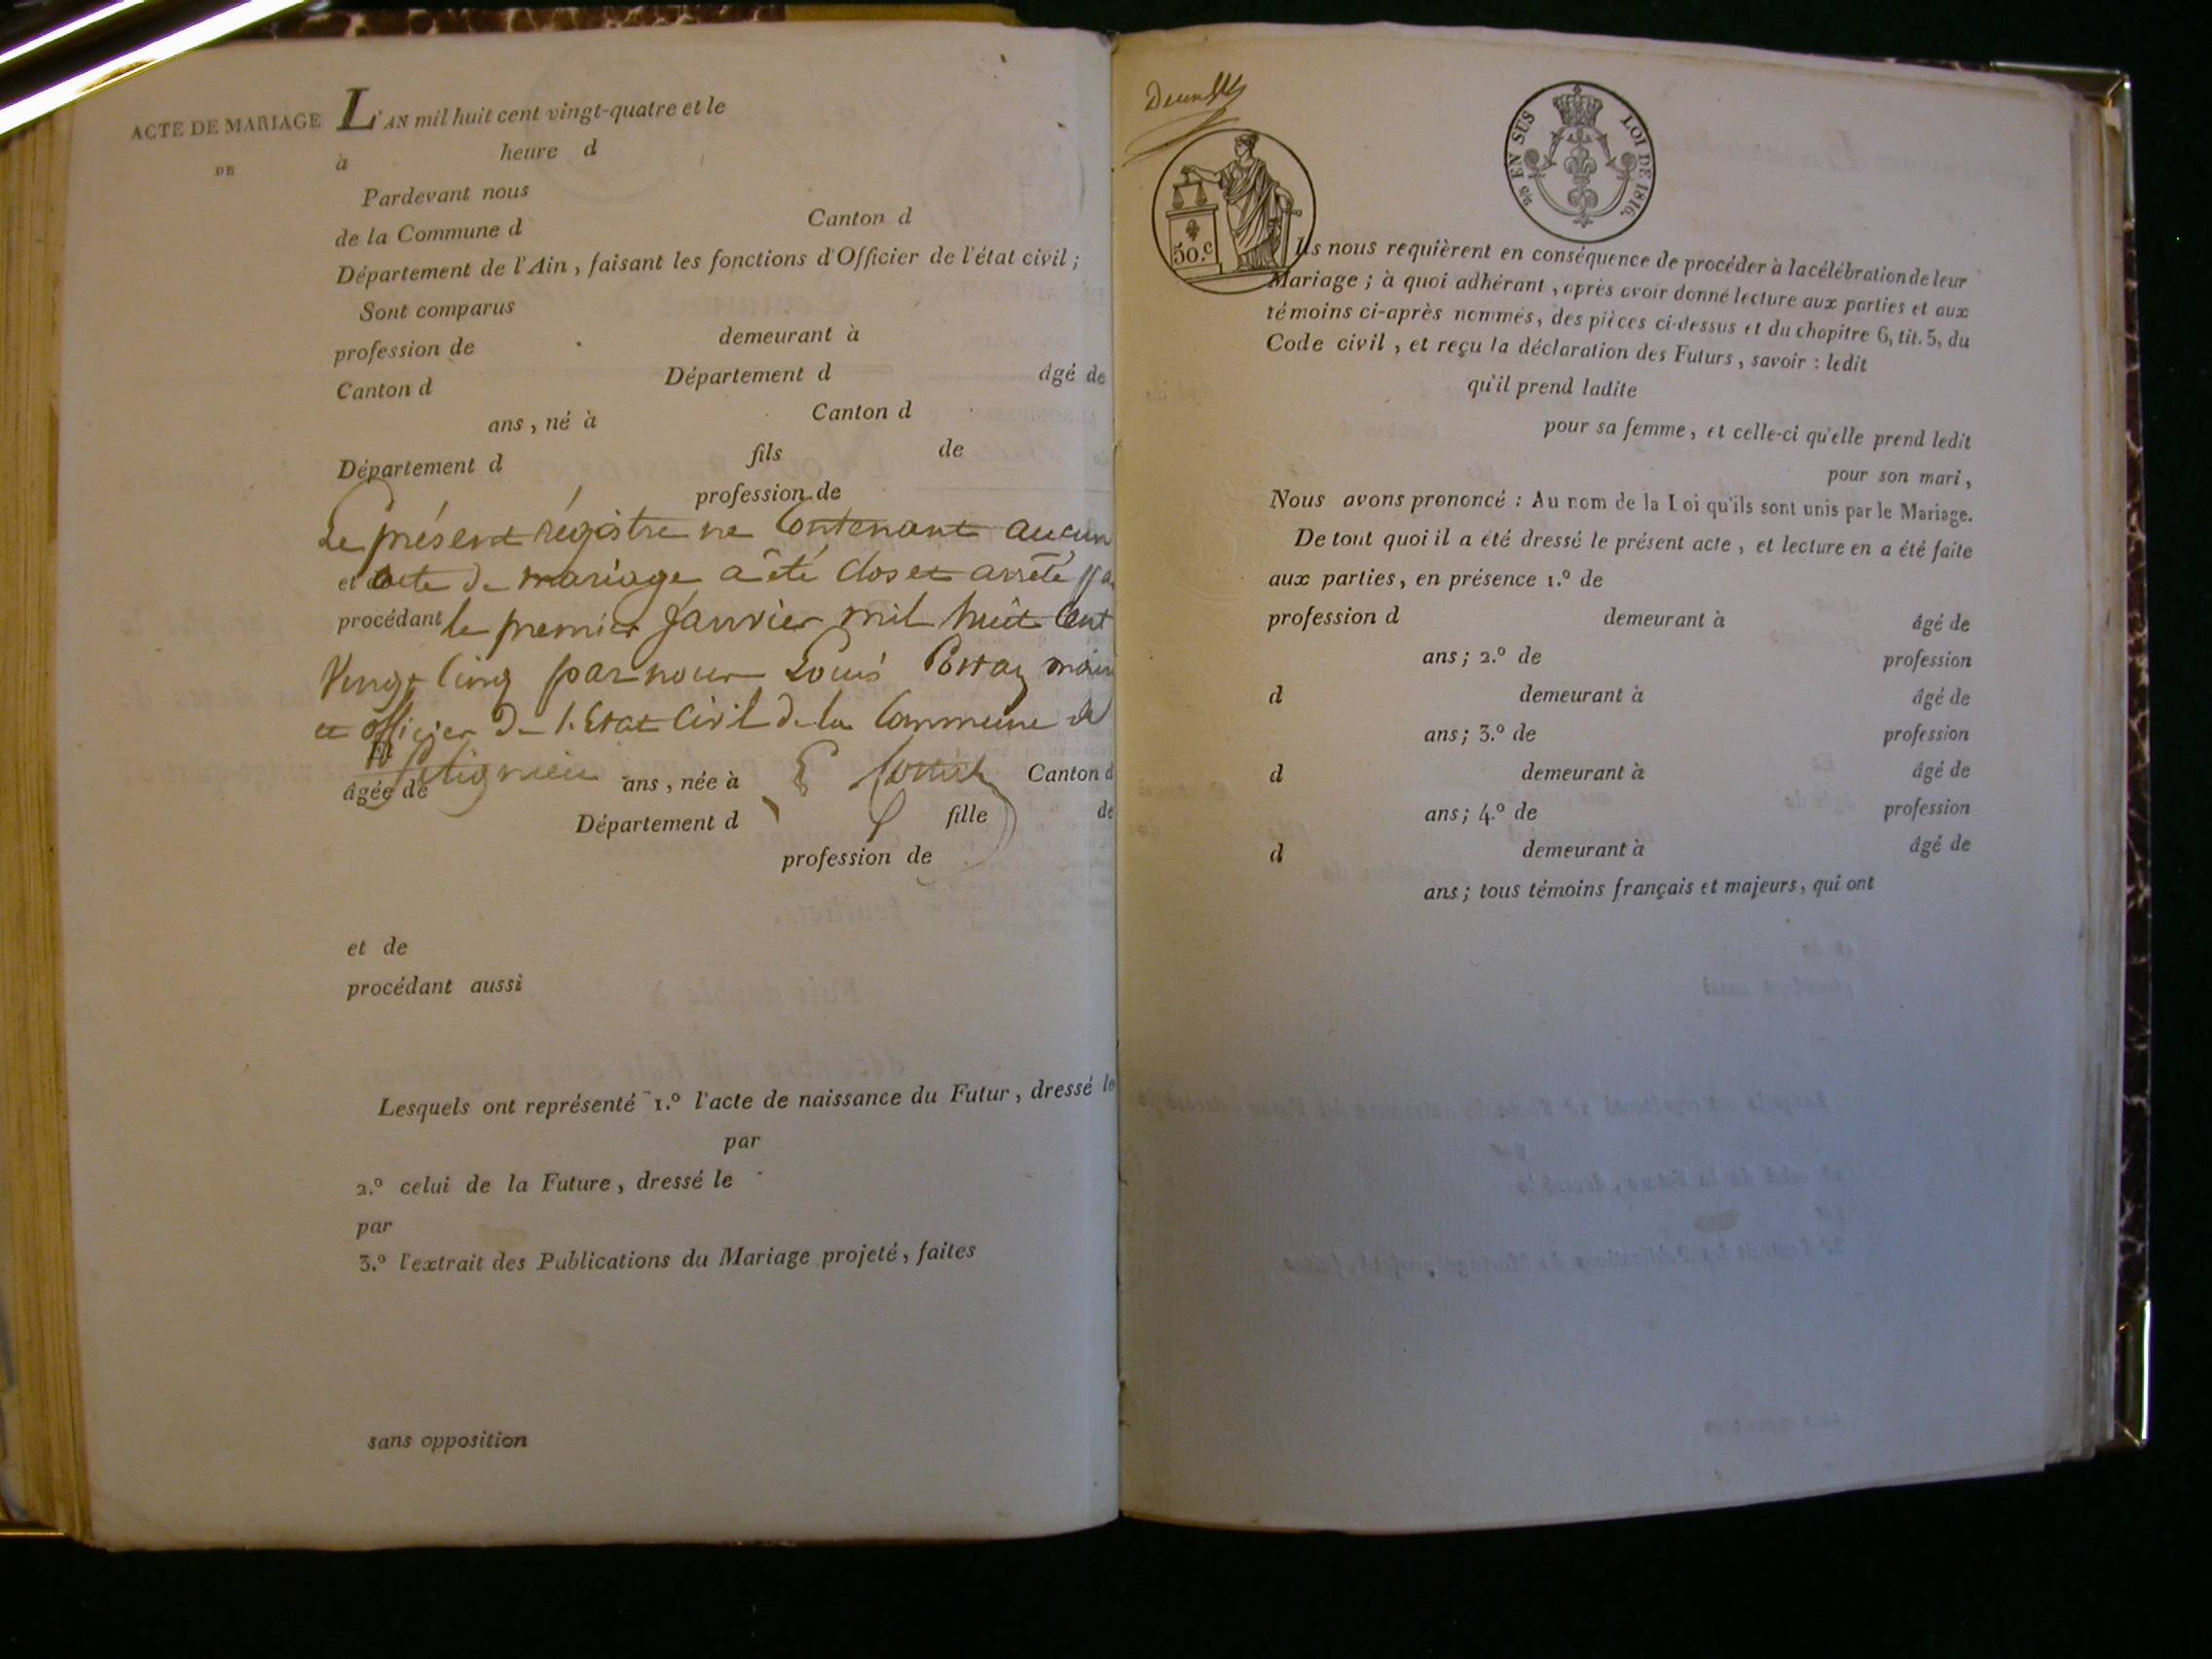 ACTE DE MARIAGE
DE
L'AN mil huit cent vingt-quatre et le
à heure d
Pardevant nous
de la Commune d Canton d
Département de l'Ain, faisant les fonctions d'Officier de l'état civil;
Sont comparus
profession de demeurant à
Canton d Département d âgé de
ans, né à Canton d
Département d fils de
profession de
Le présent régistre ne Contenant aucun
et acte de mariage a été clos et arrêté
procédant le premier Janvier mil huit Cent
Vingt Cinq par nous Louis maire
et officier De l'Etat Civil de la Commune de
âgée de ans, née à Canton d
Département d fille de
profession de
et de
procédant aussi
Lesquels ont représenté 1.º l'acte de naissance du Futur, dressé le
par
2.º celui de la Future, dressé le
par
3.º l'extrait des Publications du Mariage projeté, faites
sans opposition
50.c
EN SUS LOI DE 1816.
Ils nous requièrent en conséquence de procéder à la célébration de leur
Mariage; à quoi adhérant, après avoir donné lecture aux parties et aux
témoins ci-après nommés, des pièces ci-dessus et du chapitre 6, tit. 5, du
Code civil, et reçu la déclaration des Futurs, savoir: ledit
qu'il prend ladite
pour sa femme, et celle-ci qu'elle prend ledit
pour son mari,
Nous avons prononcé: Au nom de la Loi qu'ils sont unis par le Mariage.
De tout quoi il a été dressé le présent acte, et lecture en a été faite
aux parties, en présence 1.º de
profession d demeurant à âgé de
ans; 2.º de profession
d demeurant à âgé de
ans; 3.º de profession
d demeurant à âgé de
ans; 4.º de profession
d demeurant à âgé de
ans; tous témoins français et majeurs, qui ont